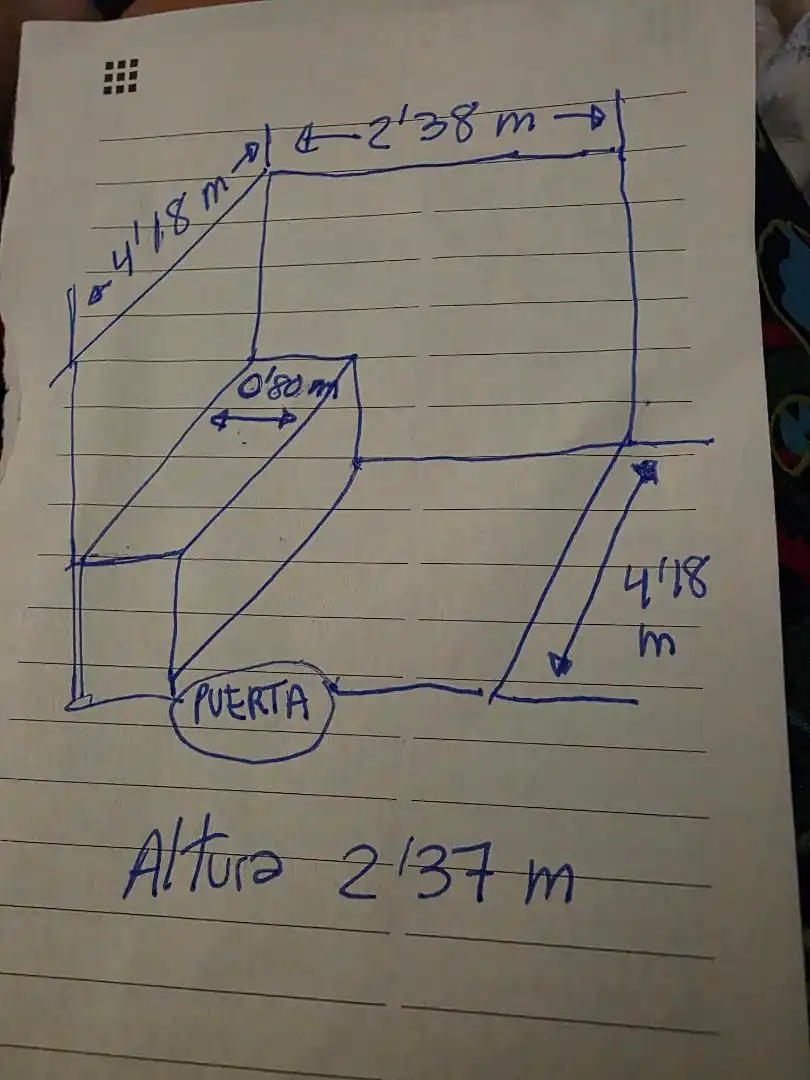 2'38 m
4'18 m
0'80 m
4'18
m
PUERTA
Altura 2'37 m